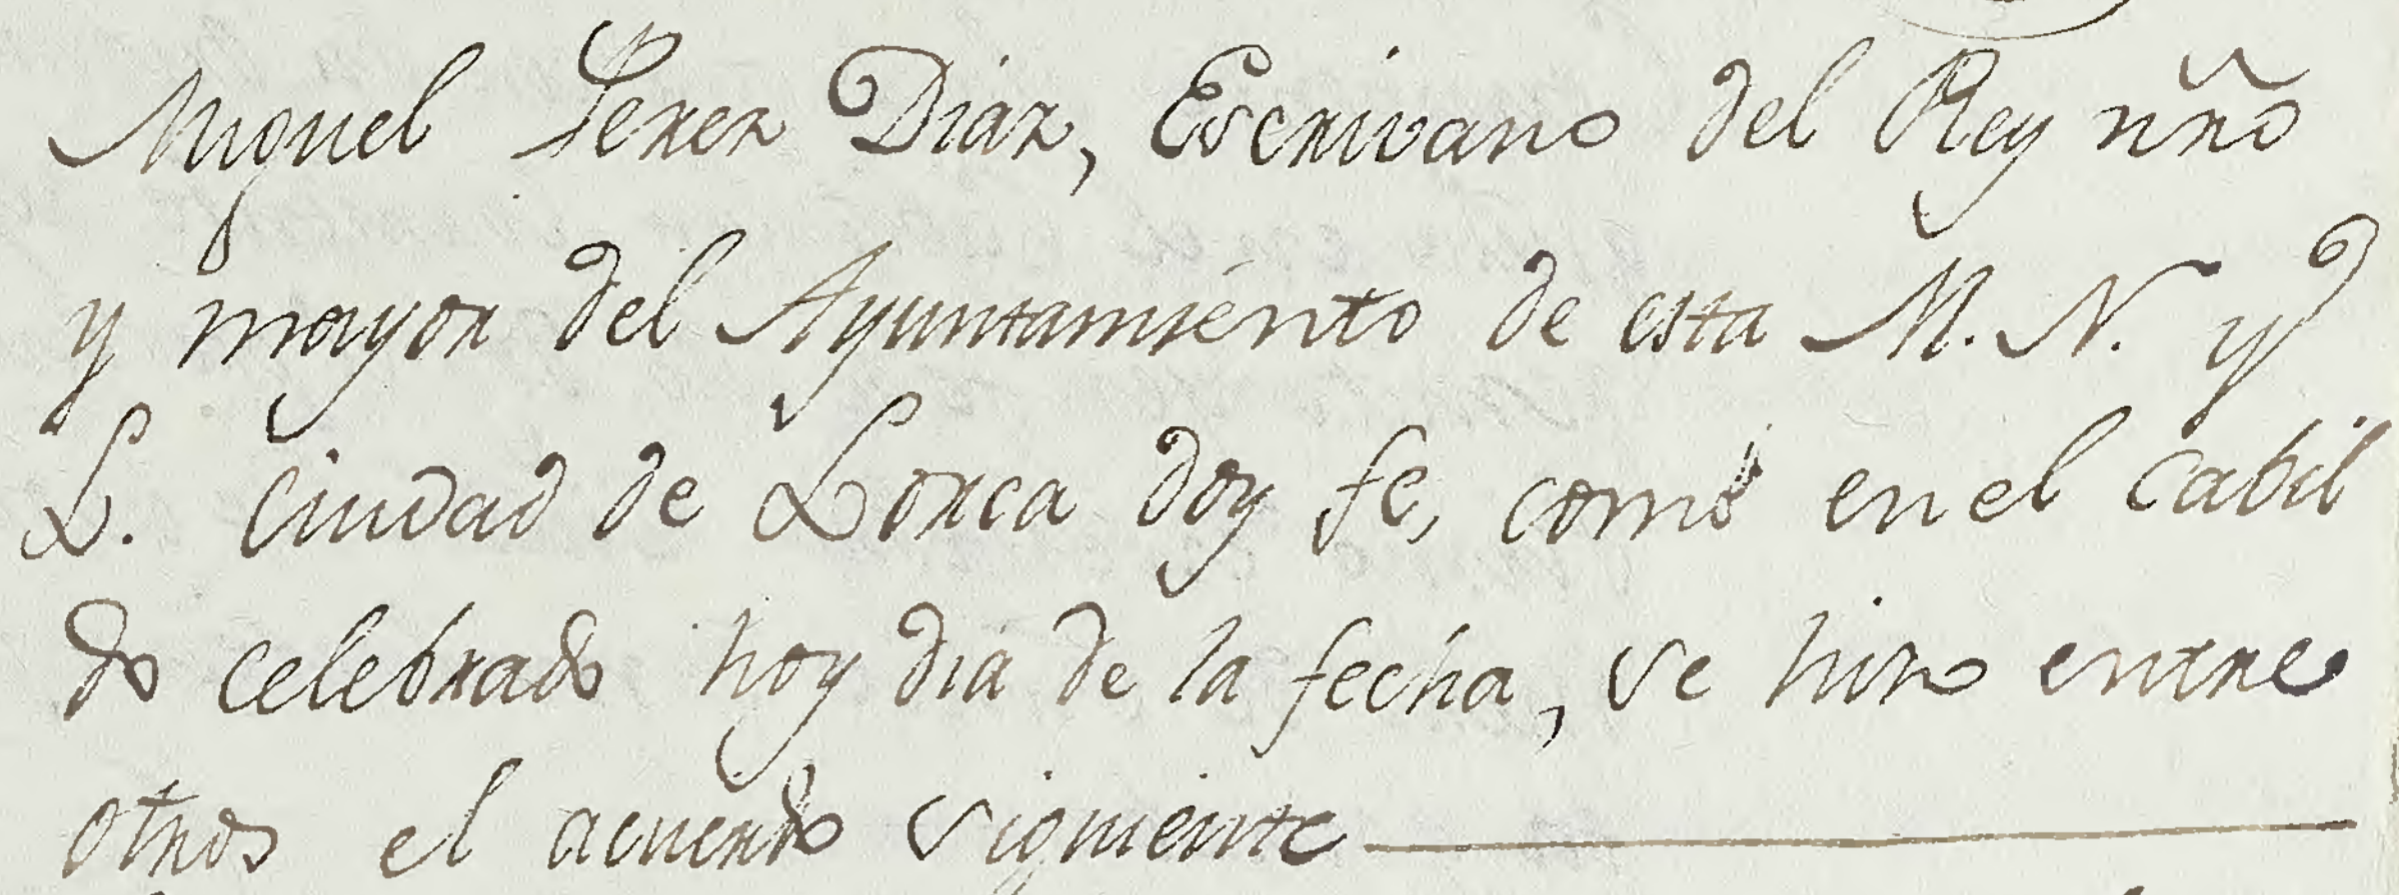 Miguel Perez Diaz, Escrivano del Rey nr̃o
y mayor del Ayuntamiento de esta M. N. y
L. Ciudad de Lorca doy fe, como en el cabil
do celebrado hoy dia de la fecha, se hizo entre
otros el acuerdo siguiente